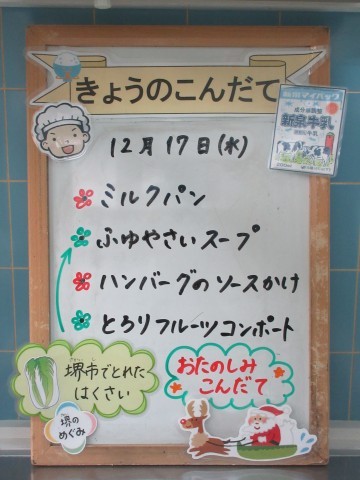 きょうのこんだて
12月17日(水)
新泉牛乳
ミルクパン
ふゆやさいスープ
ハンバーグのソースかけ
とろりフルーツコンポート
堺市でとれた
はくさい
堺の
めぐみ
おたのしみ
こんだて